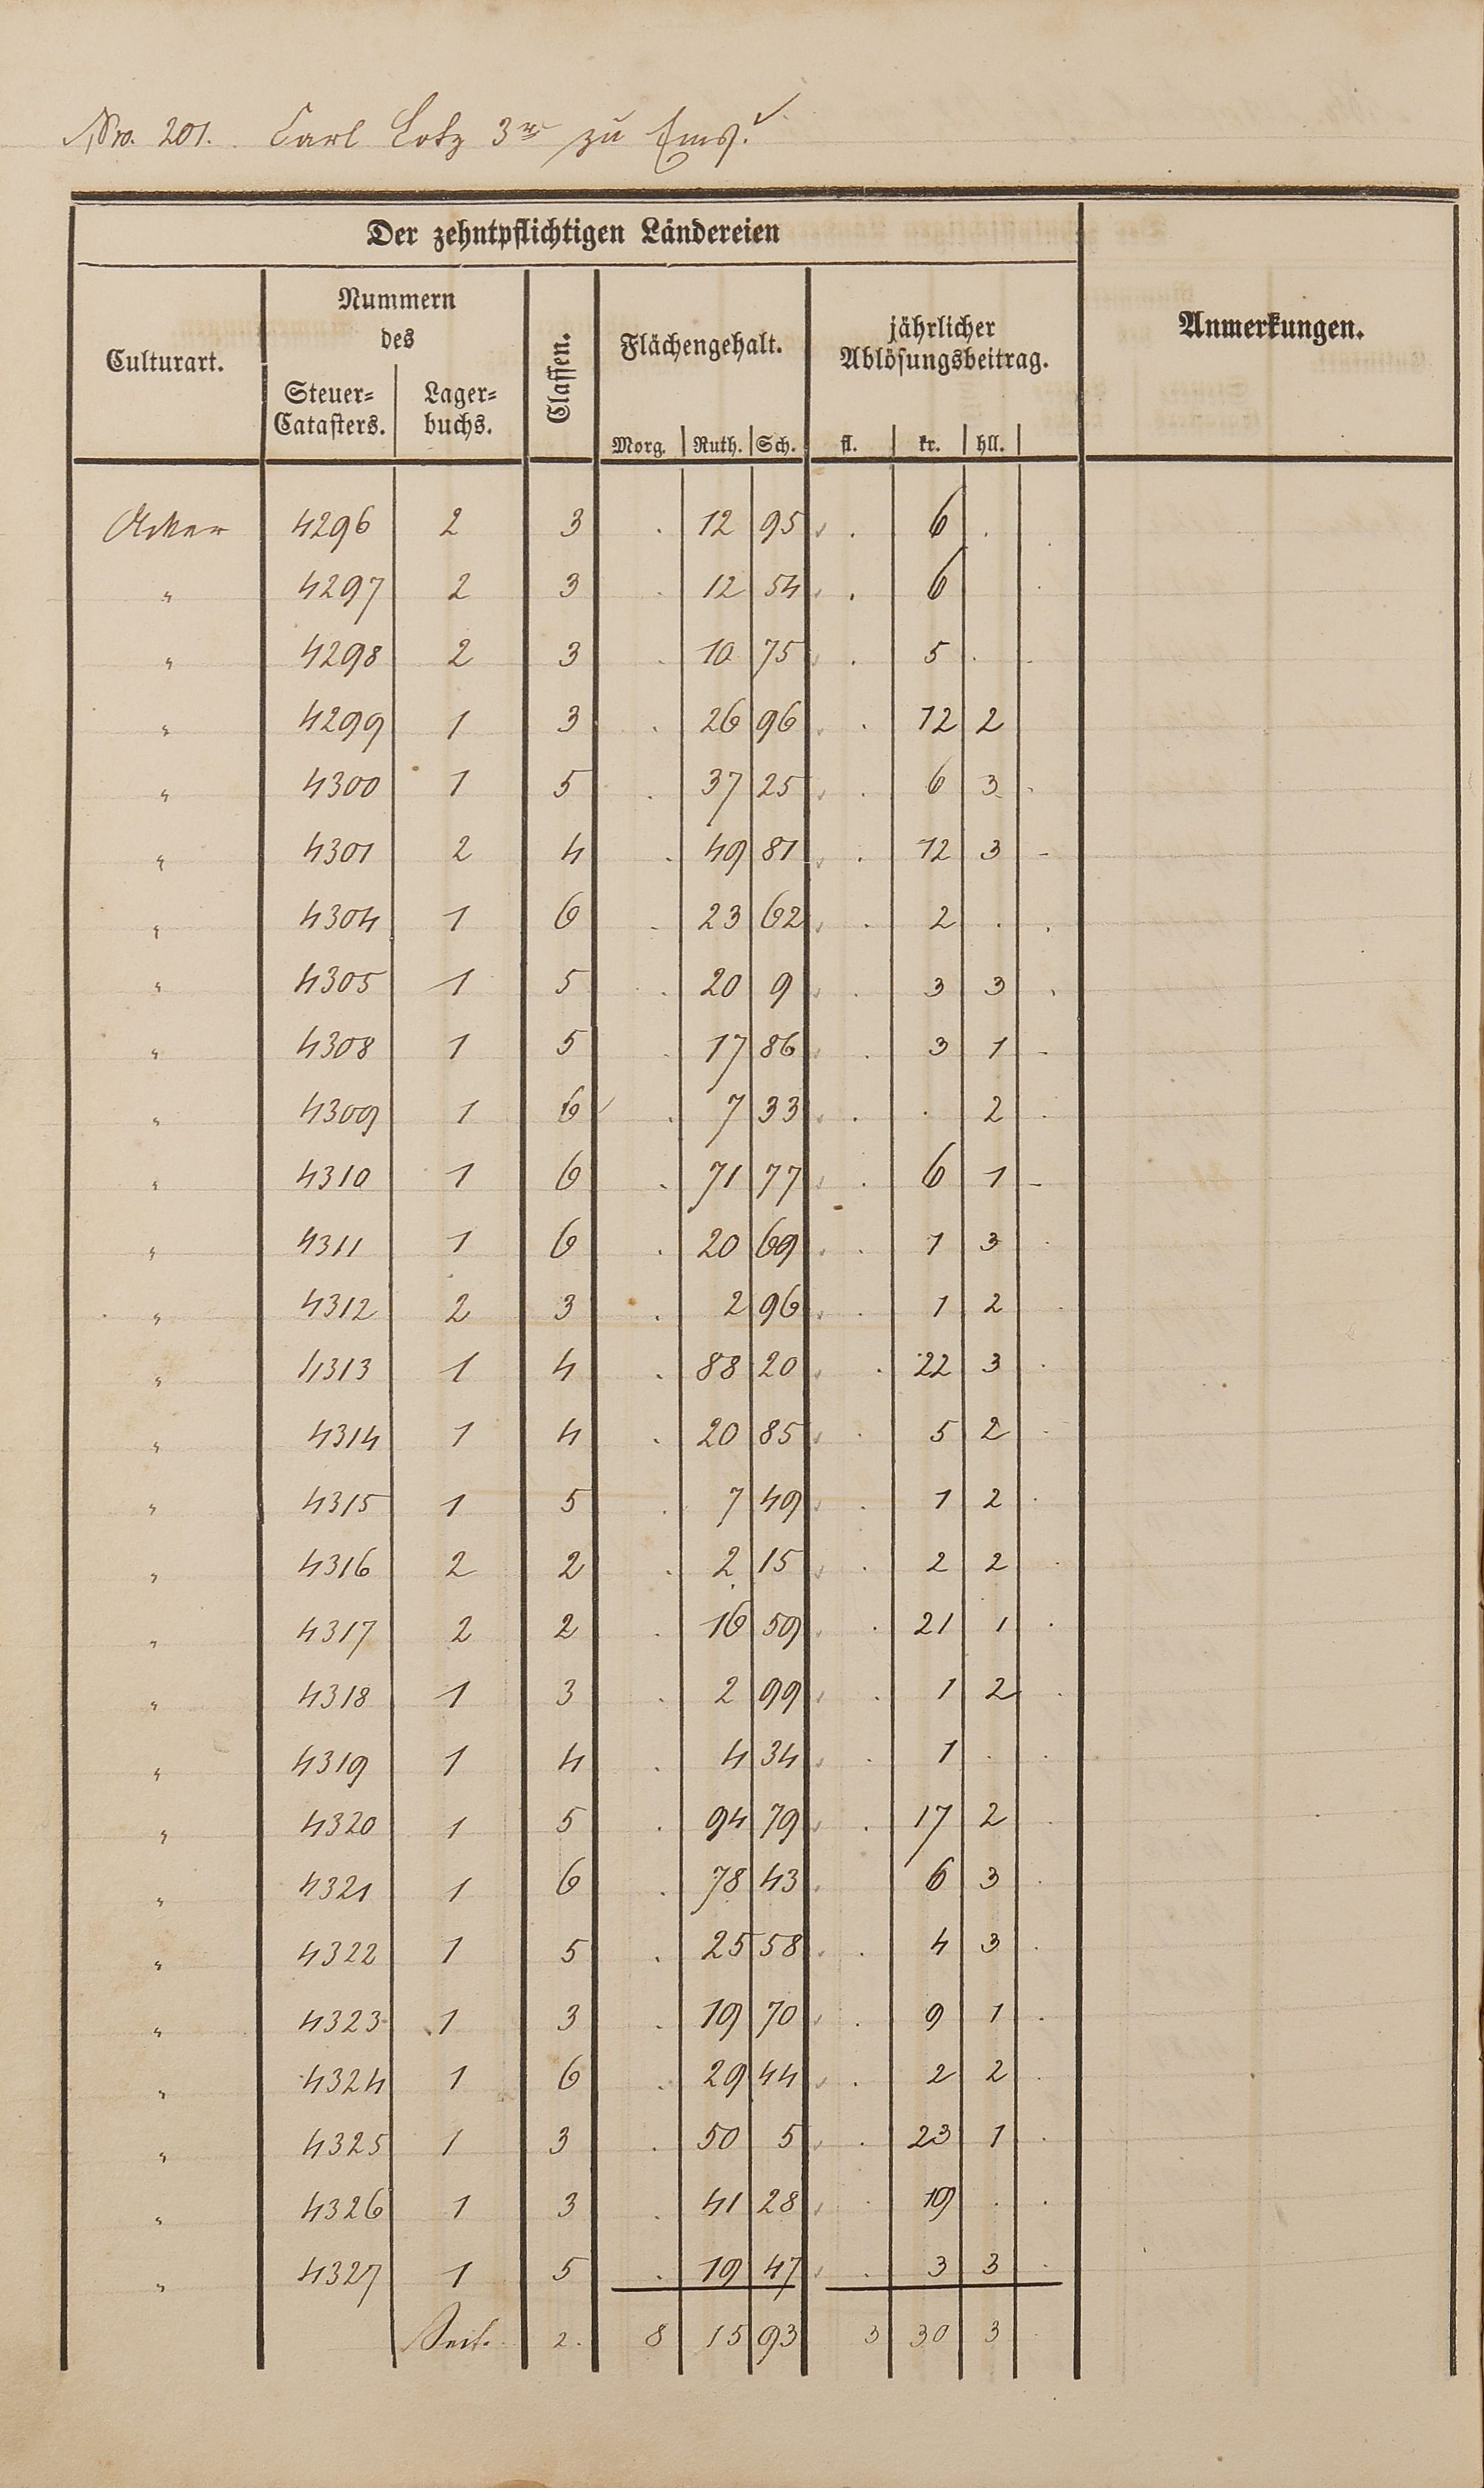 Nro. 201. Carl Lotz 3r zu Ems.
Der zehntpflichtigen Ländereien
Culturart. Nummern des Steuer=Catasters. Lager=buchs. Classen. Flächengehalt. Morg. Ruth. Sch. jährlicher Ablösungsbeitrag. fl. kr. hll. Anmerkungen.
Acker 4296 2 3 . 12 95 . 6 .
" 4297 2 3 . 12 54 . 6
" 4298 2 3 . 10 75 . 5 .
" 4299 1 3 . 26 96 . 12 2
" 4300 1 5 . 37 25 . 6 3
" 4301 2 4 . 49 81 . 12 3
" 4304 1 6 . 23 62 . 2 .
" 4305 1 5 . 20 9 . 3 3
" 4308 1 5 . 17 86 . 3 1
" 4309 1 6 . 7 33 . . 2
" 4310 1 6 . 71 77 . 6 1
" 4311 1 6 . 20 69 . 1 3
" 4312 2 3 . 2 96 . 1 2
" 4313 1 4 . 88 20 . 22 3
" 4314 1 4 . 20 85 . 5 2
" 4315 1 5 . 7 49 . 1 2
" 4316 2 2 . 2 15 . 2 2
" 4317 2 2 . 16 59 . 21 1
" 4318 1 3 . 2 99 . 1 2
" 4319 1 4 . 4 34 . 1 .
" 4320 1 5 . 94 79 . 17 2
" 4321 1 6 . 78 43 6 3
" 4322 1 5 . 25 58 . 4 3
" 4323 1 3 . 19 70 . 9 1
" 4324 1 6 . 29 44 . 2 2
" 4325 1 3 . 50 5 . 23 1
" 4326 1 3 . 41 28 . 19 .
" 4327 1 5 . 19 47 . 3 3
Seit. 2. 8 15 93 3 30 3